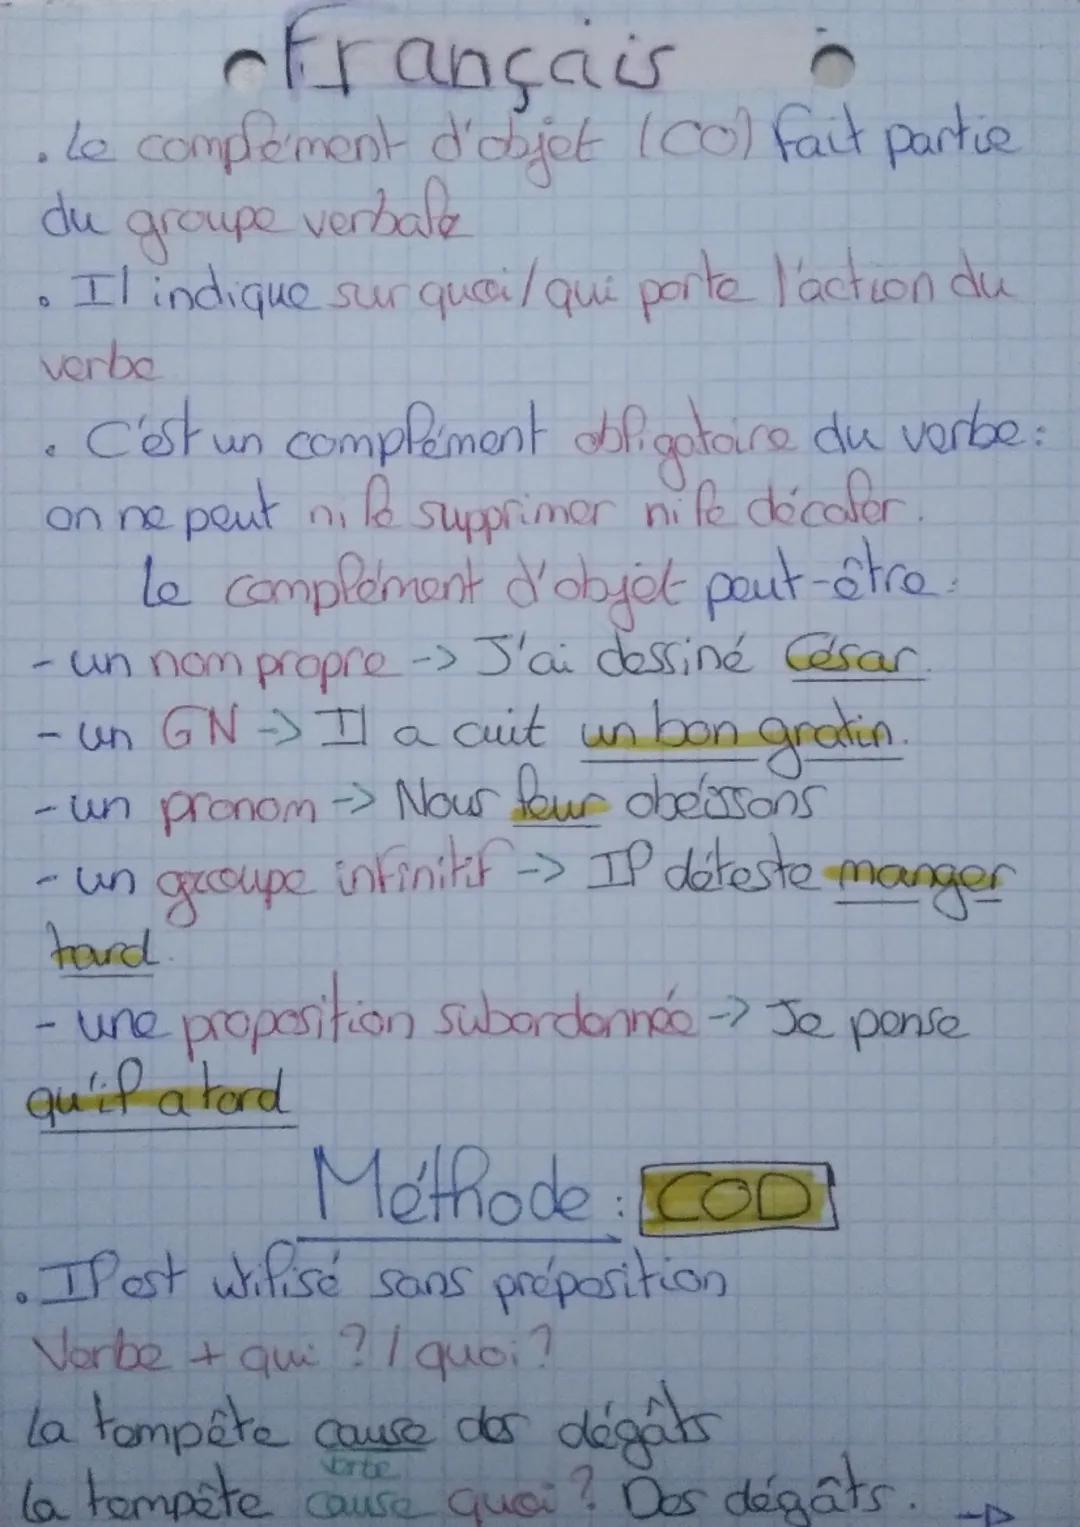 Français
. Le complément d'objet (CO) fait partie
du groupe verbale
. Il indique sur quoi/qui porte l'action du
verbe
. C'est un complément obligatoire du verbe :
on ne peut ni le supprimer ni le décaler.
Le complément d'objet peut-être :
- un nom propre -> J'ai dessiné César.
- un GN -> Il a cuit un bon gratin.
- un pronom -> Nous leur obéissons
- un groupe infinitif -> Il déteste manger
tard.
- une proposition subordonnée -> Je pense
qu'il a tord
Méthode : COD
. Il est utilisé sans préposition
Verbe + qui ? / quoi ?
La tempête cause des dégâts
verbe
La tempête cause quoi ? Des dégâts. ->